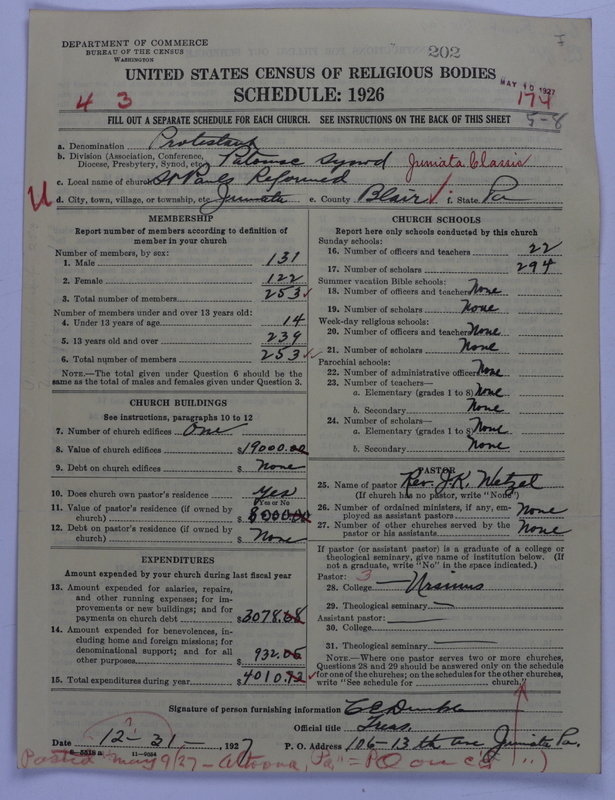 DEPARTMENT OF COMMERCE
BUREAU OF THE CENSUS
WASHINGTON
202
UNITED STATES CENSUS OF RELIGIOUS BODIES
MAY 10 1927
SCHEDULE: 1926
4 3
174
FILL OUT A SEPARATE SCHEDULE FOR EACH CHURCH. SEE INSTRUCTIONS ON THE BACK OF THIS SHEET
5-8
a. Denomination Protestant
b. Division (Association, Conference, Diocese, Presbytery, Synod, etc. Synod Juniata Classis
c. Local name of church St Pauls Reformed
U
d. City, town, village, or township, etc Juniata e. County Blair f. State Pa
MEMBERSHIP
Report number of members according to definition of member in your church
Number of members, by sex:
1. Male 131
2. Female 122
3. Total number of members 253
Number of members under and over 13 years old:
4. Under 13 years of age 14
5. 13 years old and over 239
6. Total number of members 253
NOTE.—The total given under Question 6 should be the same as the total of males and females given under Question 3.
CHURCH BUILDINGS
See instructions, paragraphs 10 to 12
7. Number of church edifices One
8. Value of church edifices $19000.00
9. Debt on church edifices $ None
10. Does church own pastor's residence Yes
Yes or No
11. Value of pastor's residence (if owned by church) $8000.00
12. Debt on pastor's residence (if owned by church) $ None
EXPENDITURES
Amount expended by your church during last fiscal year
13. Amount expended for salaries, repairs, and other running expenses; for improvements or new buildings; and for payments on church debt $3078.68
14. Amount expended for benevolences, including home and foreign missions; for denominational support; and for all other purposes $ 932.05
15. Total expenditures during year $4010.72
CHURCH SCHOOLS
Report here only schools conducted by this church
Sunday schools:
16. Number of officers and teachers 22
17. Number of scholars 294
Summer vacation Bible schools:
18. Number of officers and teachers None
19. Number of scholars None
Week-day religious schools:
20. Number of officers and teachers None
21. Number of scholars None
Parochial schools:
22. Number of administrative officers None
23. Number of teachers—
a. Elementary (grades 1 to 8) None
b. Secondary None
24. Number of scholars—
a. Elementary (grades 1 to 8) None
b. Secondary None
PASTOR
25. Name of pastor Rev. J.K. Wetzel
(If church has no pastor, write "None")
26. Number of ordained ministers, if any, employed as assistant pastors None
27. Number of other churches served by the pastor or his assistants None
If pastor (or assistant pastor) is a graduate of a college or theological seminary, give name of institution below. (If not a graduate, write "No" in the space indicated.)
Pastor: 3
28. College Ursinus
29. Theological seminary —
Assistant pastor:
30. College —
31. Theological seminary —
NOTE.—Where one pastor serves two or more churches, Questions 28 and 29 should be answered only on the schedule for one of the churches; on the schedules for the other churches, write "See schedule for ........ church."
Signature of person furnishing information
Official title Treas.
Date 12-31-, 1927 P. O. Address 106-13th ave Juniata Pa.
11—9054
Posted "May 9/27 - Altoona, Pa." = PO on